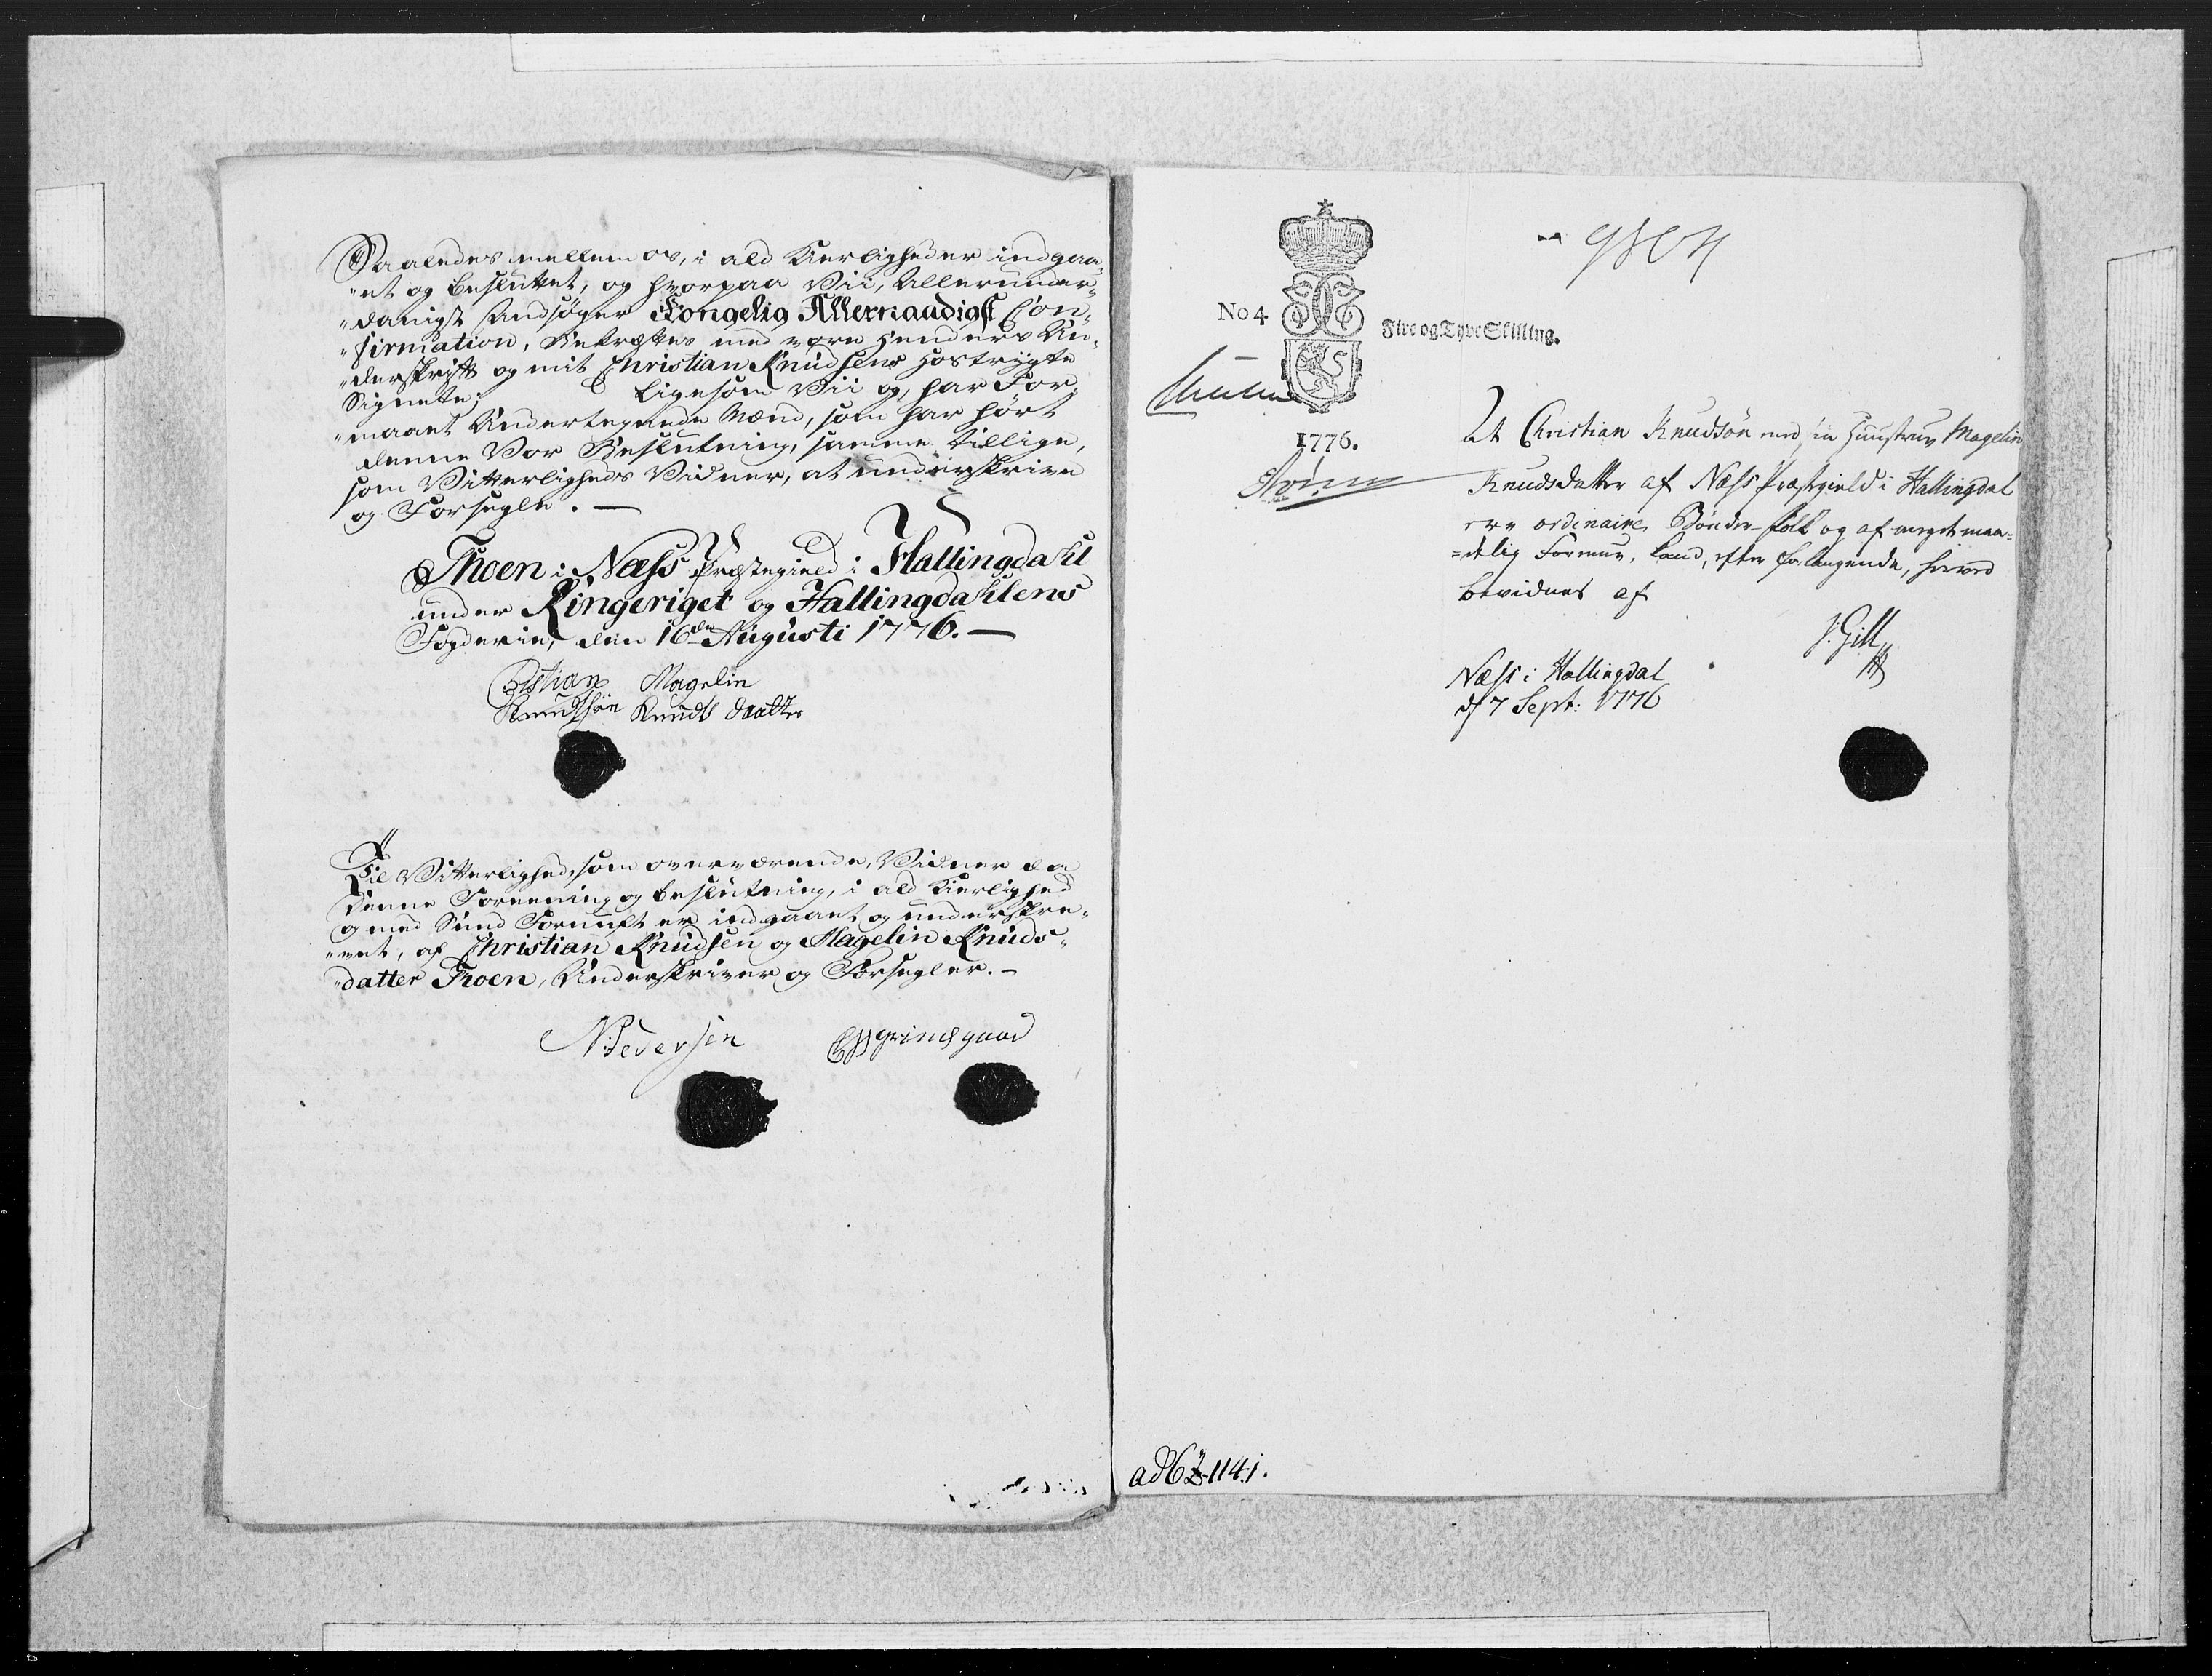 Saaledes mellem os, i ald Kierligheder indgaa-
"et og besluttet, og hvorpaa Vii, Allerunder-
"danigst Andsøger Kongelig Allernaadigst Con-
"firmation, Bekræftes med vore Henders Un-
"derskrift og mit Christian Knudsens hostrygte
Signete; Ligesom Vii og, har For-
"maaet Undertegnede Mænd, som har hørt
denne Vor Beslutning, samme tillige,
som Vitterligheds Vidner, at underskrive
og Forsegle. —
Thoen i Næss Præstegield i Hallingdahl
under Ringeriget og Hallingdahlens
Fogderie, den 16de Augusti 1776. —
Cristian Magelin
Knudssøn Knuds daatter
Til Vitterlighed, som overværende, Vidner da
denne Foreening og beslutning, i ald Kierlighed
og med Sund Fornuft er indgaaet og underskre-
"vet, af Christian Knudsen og Magelin Knuds-
"datter Thoen, Underskriver og Forsegler. —
NPedersen Grimsgaard
No 4
Fire og Tyve Skilling.
1776.
At Christian Knudsøn med sin Huustrue Magelin
Knudsdatter af Næss Præstgield i Hallingdal
ere ordinaire Bønder-folk og af meget maa-
=delig Formue, bliver, efter Forlangende, herved
bevidnet af
J: Gill
Næss i Hallingdal
d 7 Sept: 1776
ad 6 Z 1141.